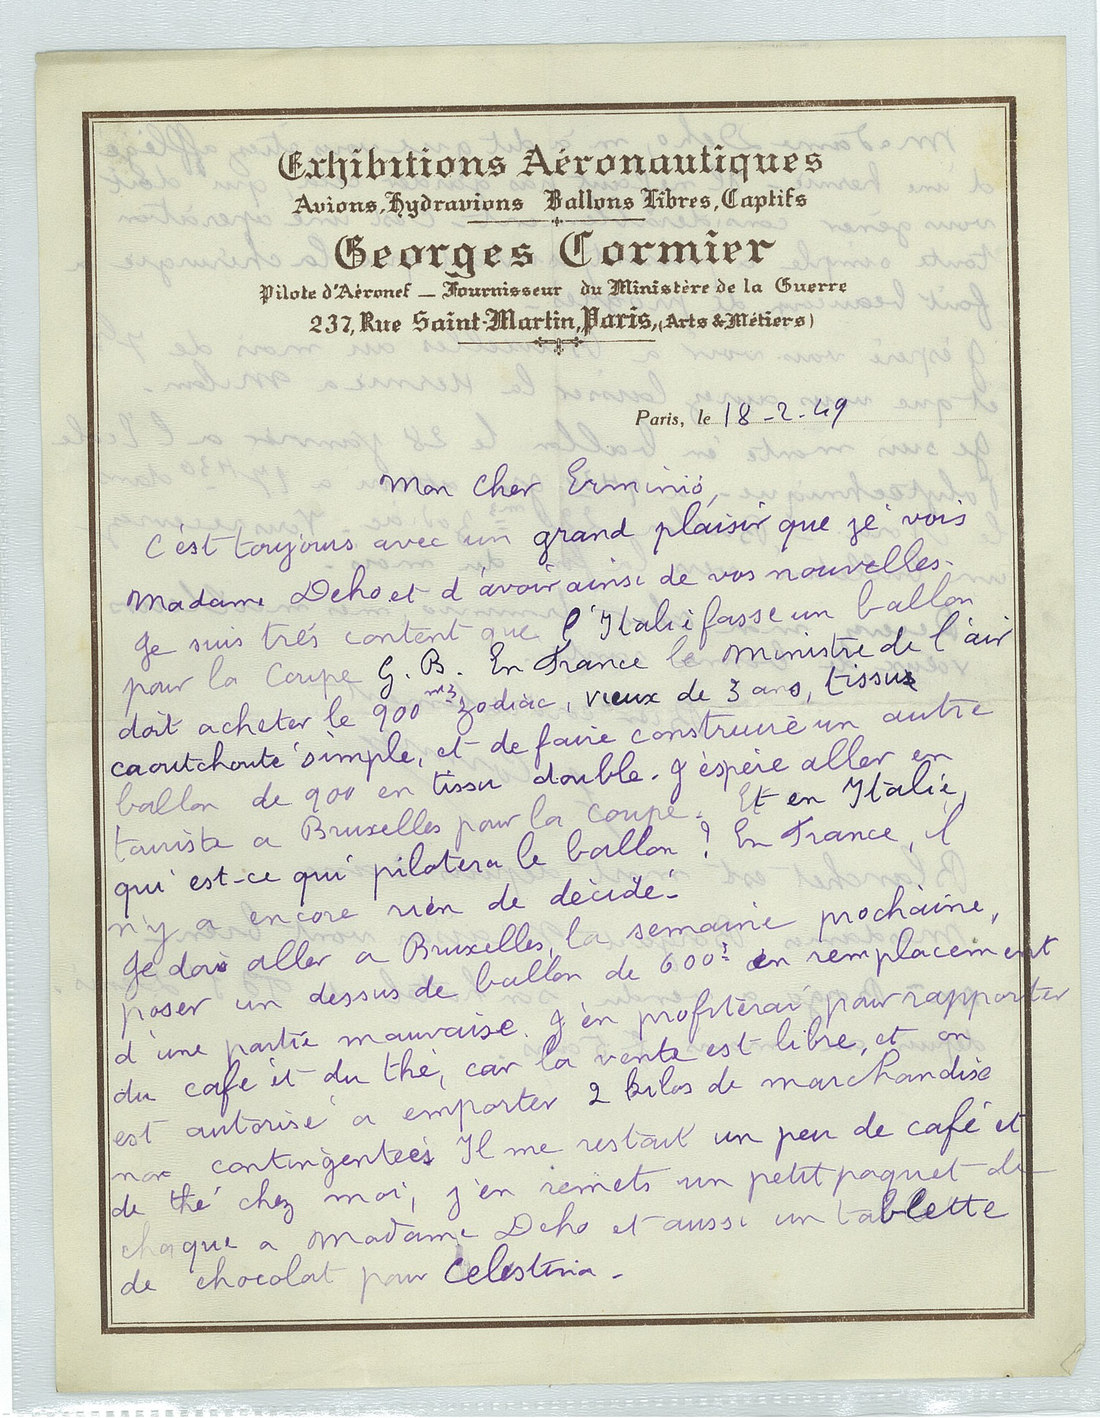 Exhibitions Aéronautiques
Avions, Hydravions Ballons Libres, Captifs
Georges Cormier
Pilote d'Aéronef — Fournisseur du Ministère de la Guerre
237, Rue Saint-Martin, Paris, (Arts & Métiers)
Paris, le 18-2-49
Mon cher Erminio,
C'est toujours avec un grand plaisir que je vois
Madame Deho et d'avoir ainsi de vos nouvelles.
Je suis très content que l'Italie fasse un ballon
pour la Coupe G. B. En France le Ministre de l'air
doit acheter le 900 m3 Zodiac, vieux de 3 ans, tissus
caoutchouté simple, et de faire construire un autre
ballon de 900 en tissu double. J'espère aller en
touriste a Bruxelles pour la coupe. Et en Italie,
qui est-ce qui pilotera le ballon ? En France, il
n'y a encore rien de décidé.
Je dois aller a Bruxelles, la semaine prochaine,
poser un dessus de ballon de 600 en remplacement
d'une partie mauvaise. J'en profiterai pour rapporter
du café et du thé, car la vente est libre, et on
est autorisé a emporter 2 kilos de marchandise
non contingentées Il me restait un peu de café et
de thé chez moi, j'en remets un petit paquet de
chaque a Madame Deho et aussi un tablette
de chocolat pour Celestina.